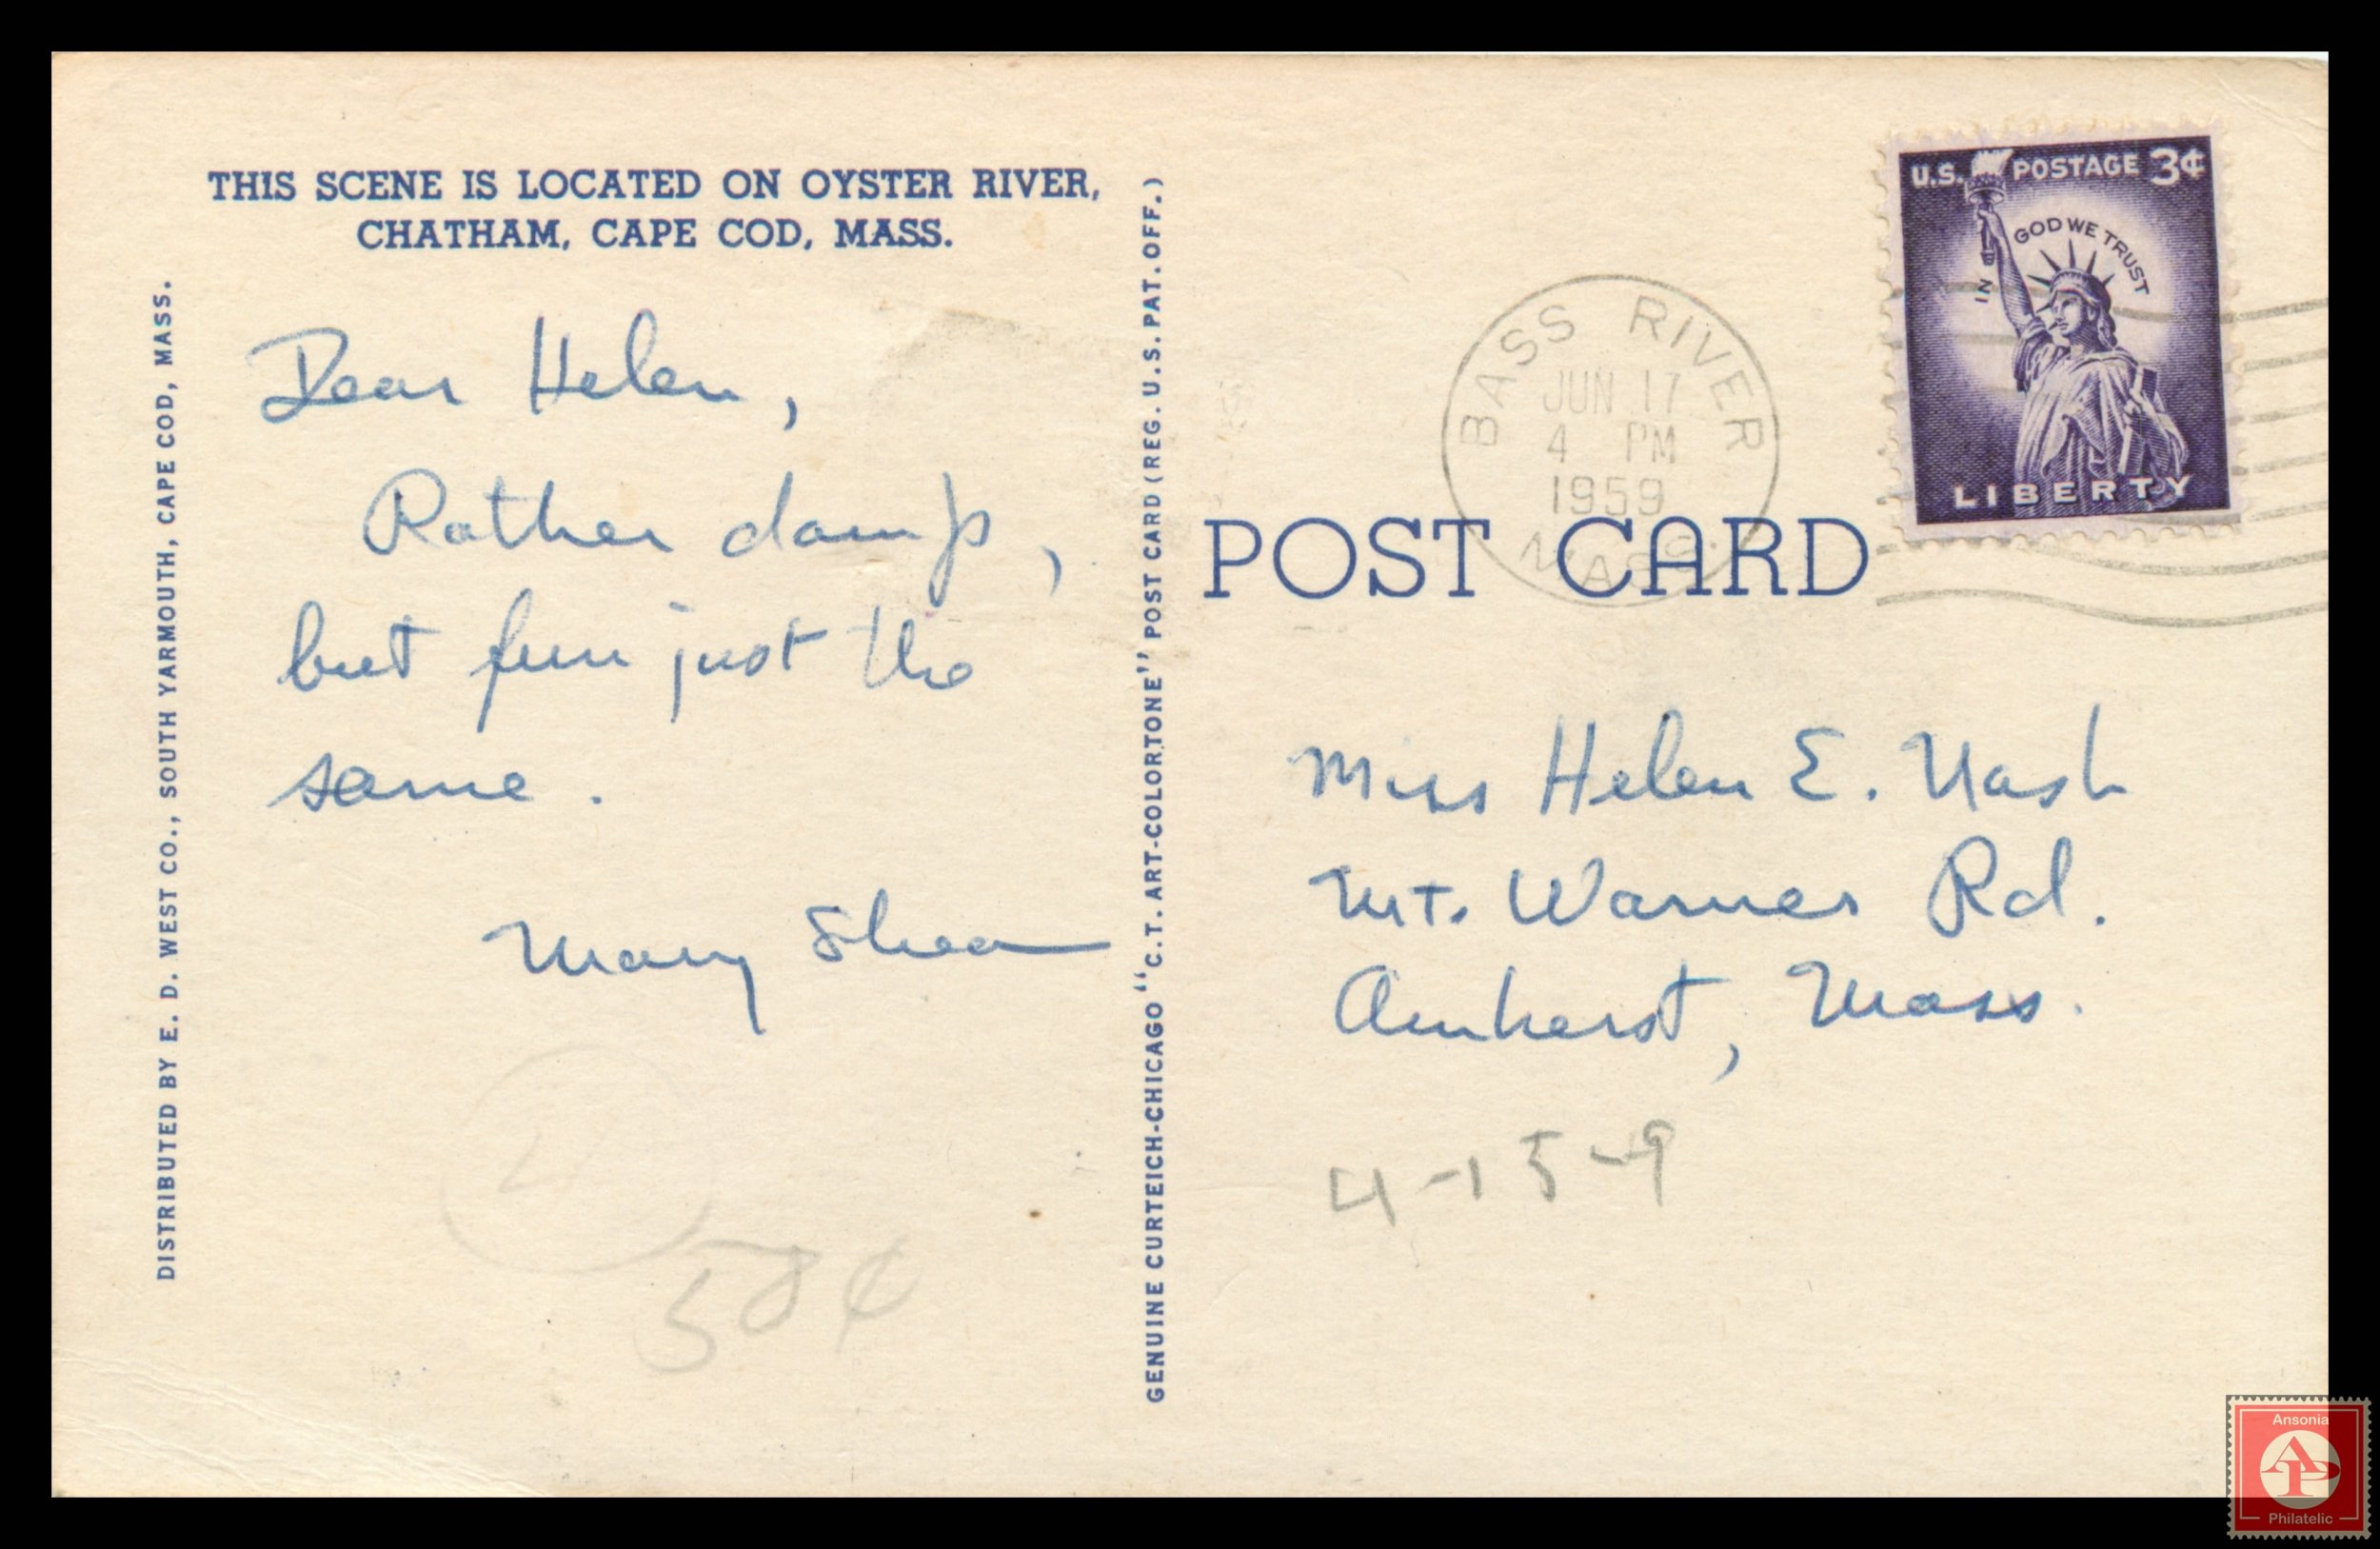 THIS SCENE IS LOCATED ON OYSTER RIVER,
CHATHAM, CAPE COD, MASS.
DISTRIBUTED BY E. D. WEST CO., SOUTH YARMOUTH, CAPE COD, MASS.
Dear Helen,
Rather damp,
but fun just the
same.
Mary Shea
50¢
GENUINE CURTEICH-CHICAGO "C.T. ART-COLORTONE" POST CARD (REG. U.S. PAT. OFF.)
BASS RIVER
JUN 17
4 PM
1959
MASS.
U.S. POSTAGE 3¢
IN GOD WE TRUST
LIBERTY
POST CARD
Miss Helen E. Nash
Mt. Warner Rd.
Amherst, Mass.
4-15-9
Ansonia
AP
Philatelic